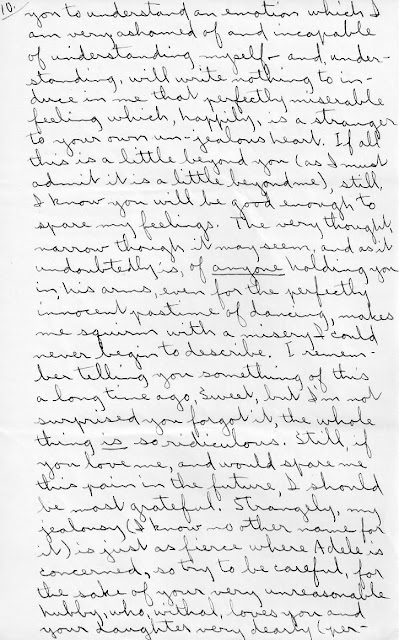 10.
you to understand an emotion which I
am very ashamed of and incapable
of understanding myself - and, under-
standing, will write nothing to in-
duce in me that perfectly miserable
feeling which, happily, is a stranger
to your own un-jealous heart. If all
this is a little beyond you (as I must
admit it is a little beyond me), still,
I know you will be good enough to
spare my feelings. The very thought,
narrow though it may seem, and as it
undoubtedly is, of anyone holding you
in his arms, even for the perfectly
innocent pastime of dancing, makes
me squirm with a misery I could
never begin to describe. I remem-
ber telling you something of this
a long time ago, Sweet, but I'm not
surprised you forgot it, the whole
thing is so ridiculous. Still, if
you love me, and would spare me
this pain in the future, I should
be most grateful. Strangely, my
jealousy (I know no other name for
it) is just as fierce where Adele is
concerned, so try to be careful, for
the sake of your very unreasonable
hubby, who, withal, loves you and
your daughter very dearly (per-